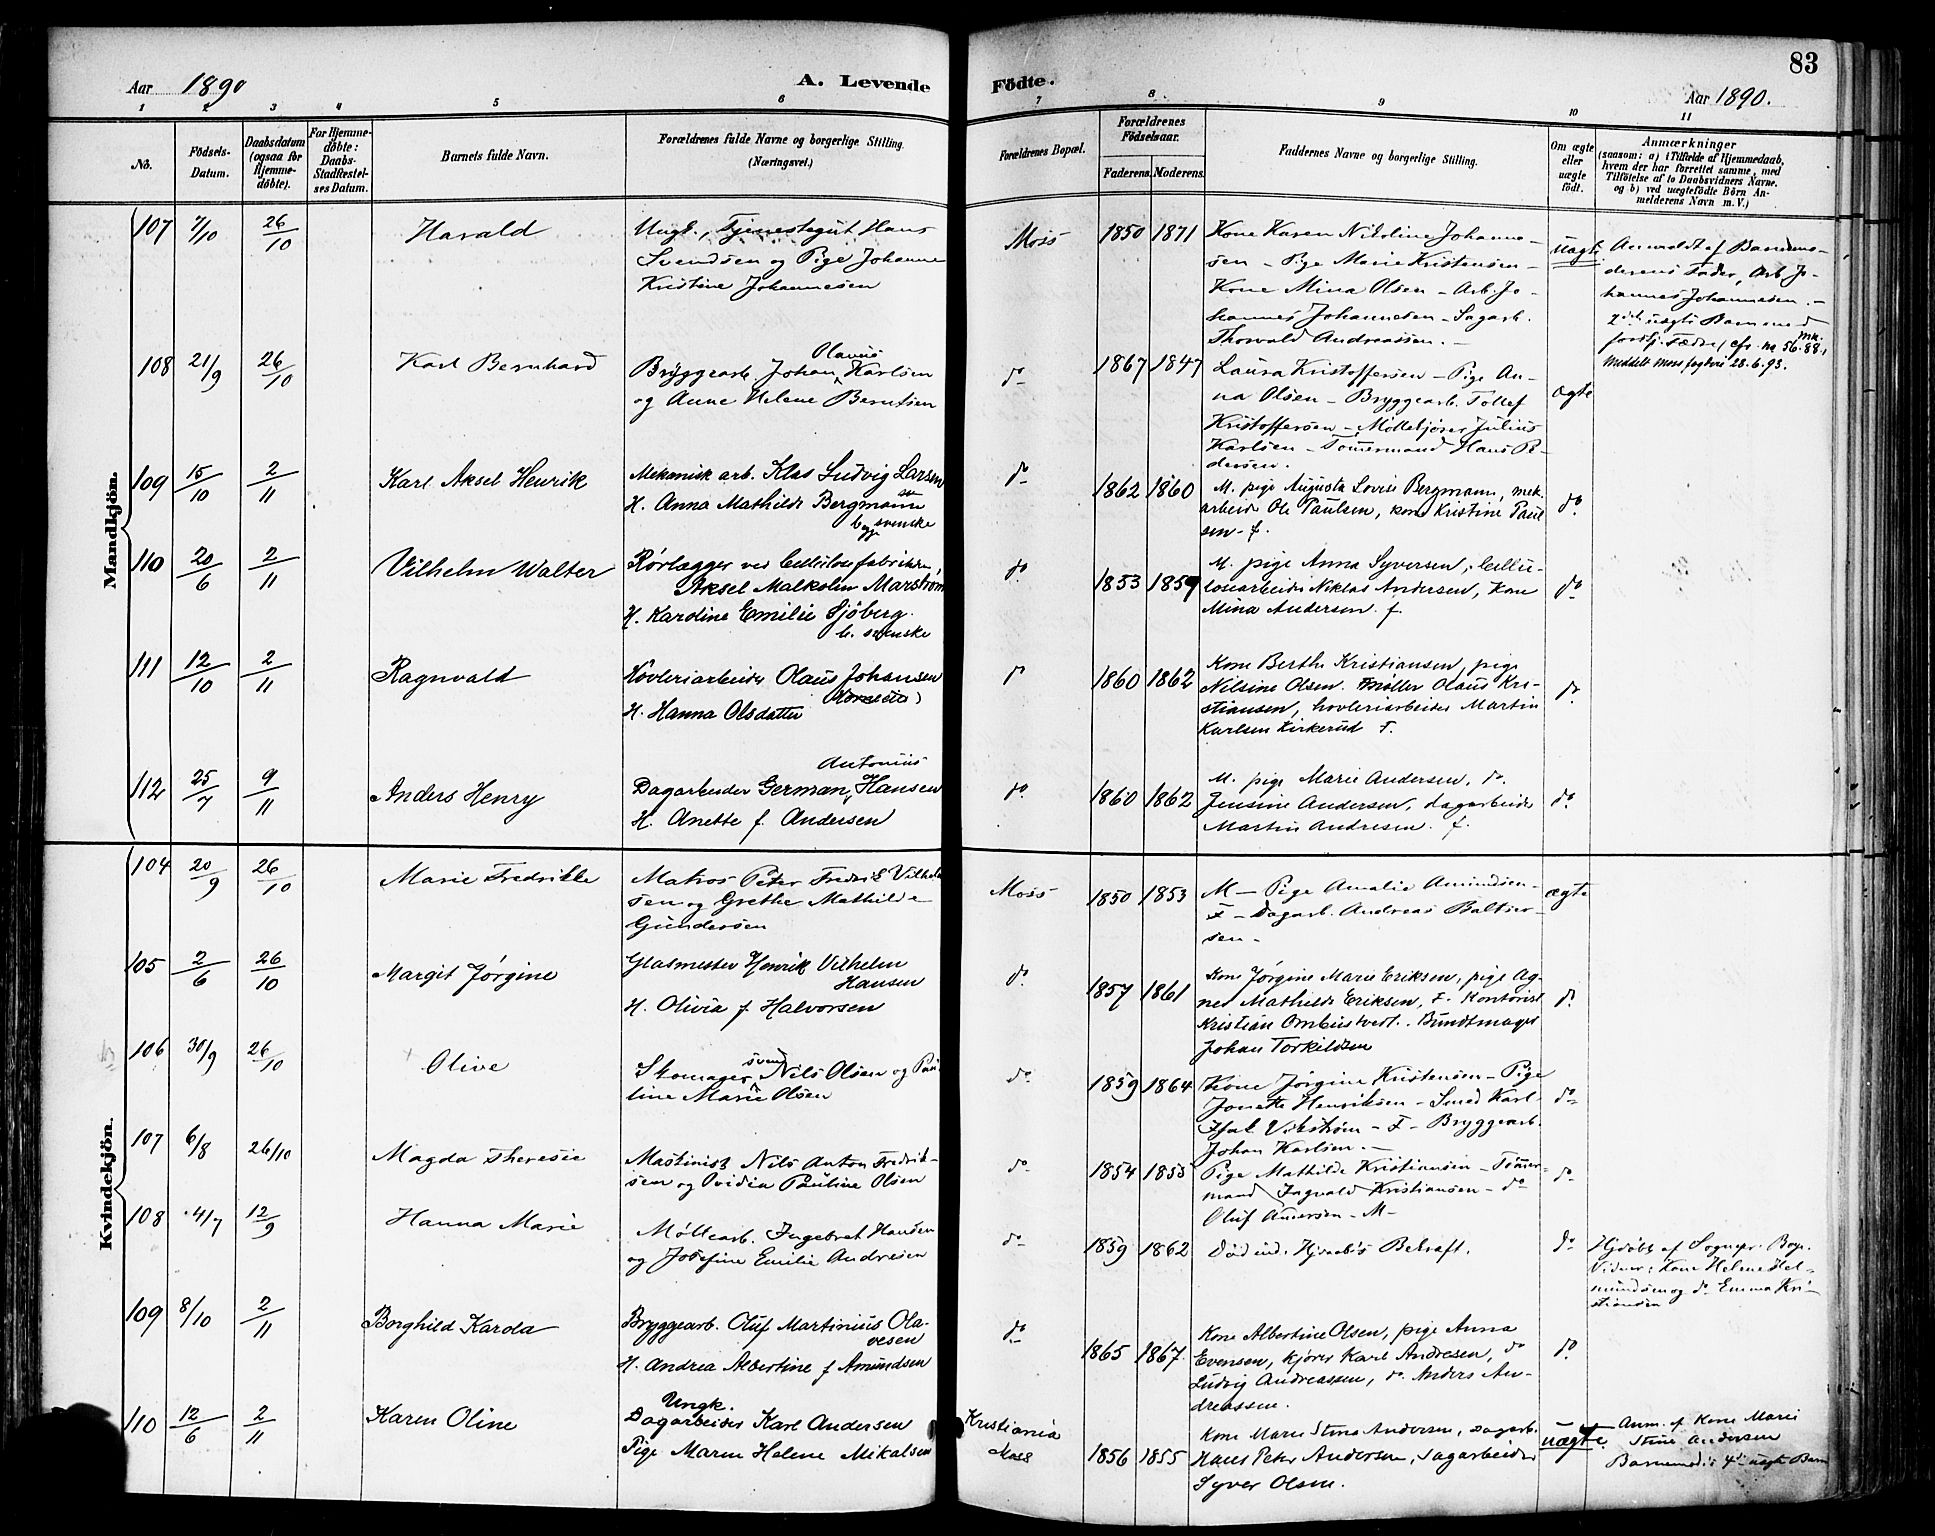 83
Aar 1890
A. Levende
Födte.
Aar 1890.
1 2 3 4 5 6 7 8 9 10 11
No.
Födsels-
Datum.
Daabsdatum
(ogsaa for
Hjemme-
døbte).
For Hjemme-
døbte:
Daabs-
Stadfæstel-
ses Datum.
Barnets fulde Navn.
Forældrenes fulde Navne og borgerlige Stilling.
(Næringsvei.)
Forældrenes Bopæl.
Forældrenes
Födselsaar.
Faderens. Moderens.
Faddernes Navne og borgerlige Stilling.
Om ægte
eller
uægte
født.
Anmærkninger
(saasom: a) i Tilfælde af Hjemmedaab,
hvem der har forrettet samme, med
Tilföielse af to Daabsvidners Navne.
og b) ved uægtefödte Börn An-
melderens Navn m. V.)
Mandkjön.
107 7/10 26/10 Harald
Ungk., Tjenestegut Hans
Svendsen og Pige Johanne
Kristine Johannesen
Moss 1850 1871
Kone Karen Nikoline Johanne-
sen - Pige Marie Kristensen -
Kone Mina Olsen - Arb. Jo-
hannes Johannesen - Sagarb.
Thorvald Andreassen. -
uægte
Anmeldt af Barnemo-
derens Fader, Arb. Jo-
hannes Johannesen. -
2det uægte Barn med
forskj. Fædre, cfr. no 56 Mk. 88.
Meddelt Moss fogderi 28.6.93.
108 21/9 26/10 Karl Bernhard
Bryggearb. Johan Olavus Karlsen
og Anne Helene Berntsen
do 1867 1847
Laura Kristoffersen - Pige An-
na Olsen - Bryggearb. Tollef
Kristoffersen - Møllekjører Julius
Karlsen - Tømermand Hans Pe-
dersen.
ægte
109 15/10 2/11 Karl Aksel Henrik
Mekanisk arb. Klas Ludvig Larsen
H. Anna Mathilde Bergmann
begge svenske
do 1862 1860
M. pige Augusta Lovise Bergmann, mek.
arbeider Ole Paulsen, kone Kristine Paul
sen - f.
do
110 20/6 2/11 Vilhelm Walter
Rørlægger ved Cellulosefabrikken,
Aksel Malkolm Marstrøm
H. Karoline Emilie Sjöberg.
b. svenske
do 1853 1859
M. pige Anna Syversen, Cellu-
losearbeider Niklas Andersen, Kone
Mina Andersen. f.
do
111 12/10 2/11 Ragnvald
Høvleriarbeider Olaus Johansen
H. Hanna Olsdatter
do 1860 1862
Kone Berthe Kristiansen, pige
Nilsine Olsen. Møller Olaus Kri-
stiansen, høvleriarbeider Martin
Karlsen Kirkerud F.
do
112 25/7 9/11 Anders Henry
Dagarbeider German Antonius Hansen
H. Anette f. Andersen
do 1860 1862
M. pige Marie Andersen, do.
Jensine Andersen, dagarbeider
Martin Andresen. f.
do
Kvindekjön.
104 20/9 26/10 Marie Fredrikke
Matros Peter Fredrik Vilhelm
sen og Grethe Mathilde
Gundersen
Moss 1850 1853
M - Pige Amalie Amundsen -
F - Dagarb. Andreas Balter-
sen -
ægte
105 2/6 26/10 Margit Jørgine
Glasmester Henrik Vilhelm
Hansen
H. Olivia f. Halvorsen
do 1857 1861
Kone Jørgine Marie Eriksen, pige Ag-
nes Mathilde Eriksen, F. Kontorist
Kristian Ombustvedt. Bundtmager
Johan Torkildsen
do
106 30/9 26/10 Olive
Skomagersvend Nils Olsen og Pau-
line Marie Olsen
do 1859 1864
Kone Jørgine Kristensen - Pige
Jonette Henriksen - Smed Karl
Isak Vikstrøm - F - Bryggearb.
Johan Karlsen. -
do
107 6/8 26/10 Magda Theresie
Maskinist Nils Anton Fredrik-
sen og Ovidia Pauline Olsen
do 1854 1855
Pige Mathilde Kristiansen - Tømer-
mand Ingvald Kristiansen - do
Oluf Andersen - M -
do
108 4/7 12/9 Hanna Marie
Møllearb. Ingebret Hansen
og Josefine Emilie Andresen
do 1859 1862
Død ind. Hjdaabs Bekræft.
do
Hjdøbt af Sognepr. Boye.
Vidner: Kone Helene Hel-
mundsen og do Emma Kri-
stiansen
109 8/10 2/11 Borghild Karola
Bryggearb. Oluf Martinius Ola-
vesen
H. Andrea Albertine f Amundsen
do 1865 1867
Kone Albertine Olsen, pige Anna
Evensen, kjører Karl Andresen, do
Ludvig Andreassen, do. Anders An-
dreassen.
do
110 12/6 2/11 Karen Oline
Ungk.
Dagarbeider Karl Andersen
Pige Maren Helene Mikalsen
Kristiania
Moss
1856 1855
Kone Marie Stina Andersen, Dagarb.
Hans Peter Andersen, Dagarbeider
Syver Olsen.
uægte
Anm. af Kone Marie
Stine Andersen
Barnemoders 4de uægte Barn